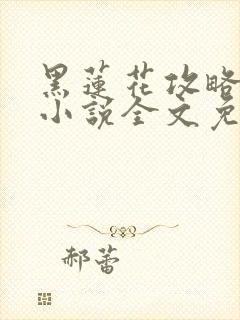 黑蓮花攻略
小說全文免
郝蕾